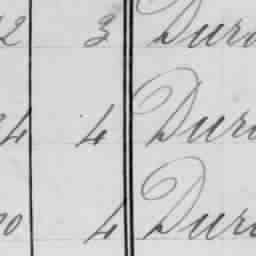 2 3 Dur
24 4 Dur
00 4 Dur